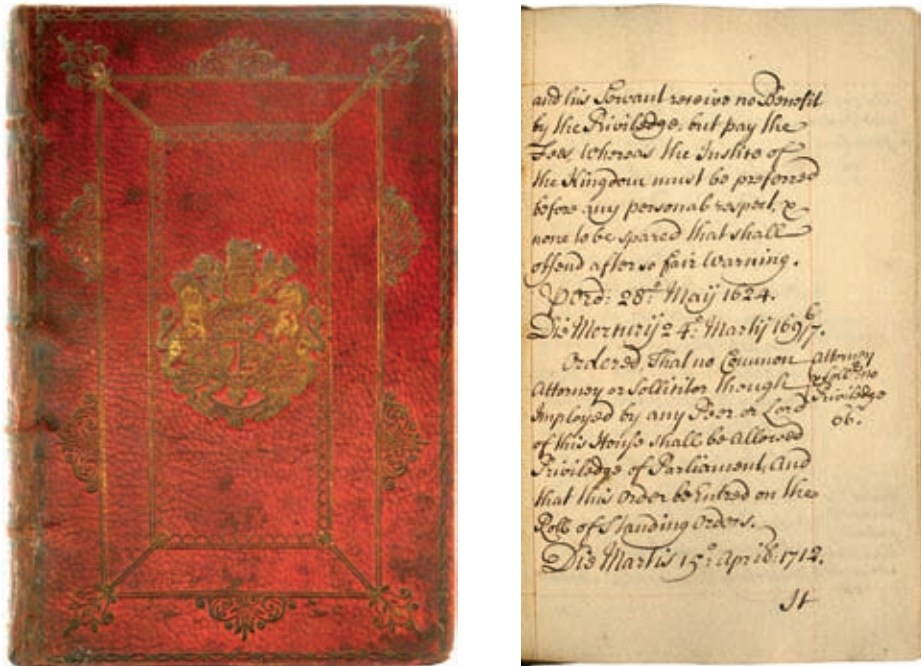 and his Servant receive no Benefit
by the Priviledge, but pay the
Fees, Whereas the Justice of
the Kingdome must be preferred
before any personal respect, &
none to be spared that shall
offend after so fair Warning.
28.° Maij 1624.
Die Mercurij 24.° Martij 1696/7.
Ordered, That no Common
Attorney or Sollicitor though
Imployed by any Peer or Lord
of this House shall be Allowed
Priviledge of Parliament, And
that this Order be Entred on the
Roll of Standing Orders.
Die Martis 15.° April: 1712.
It
Attorney
no
Priviledge